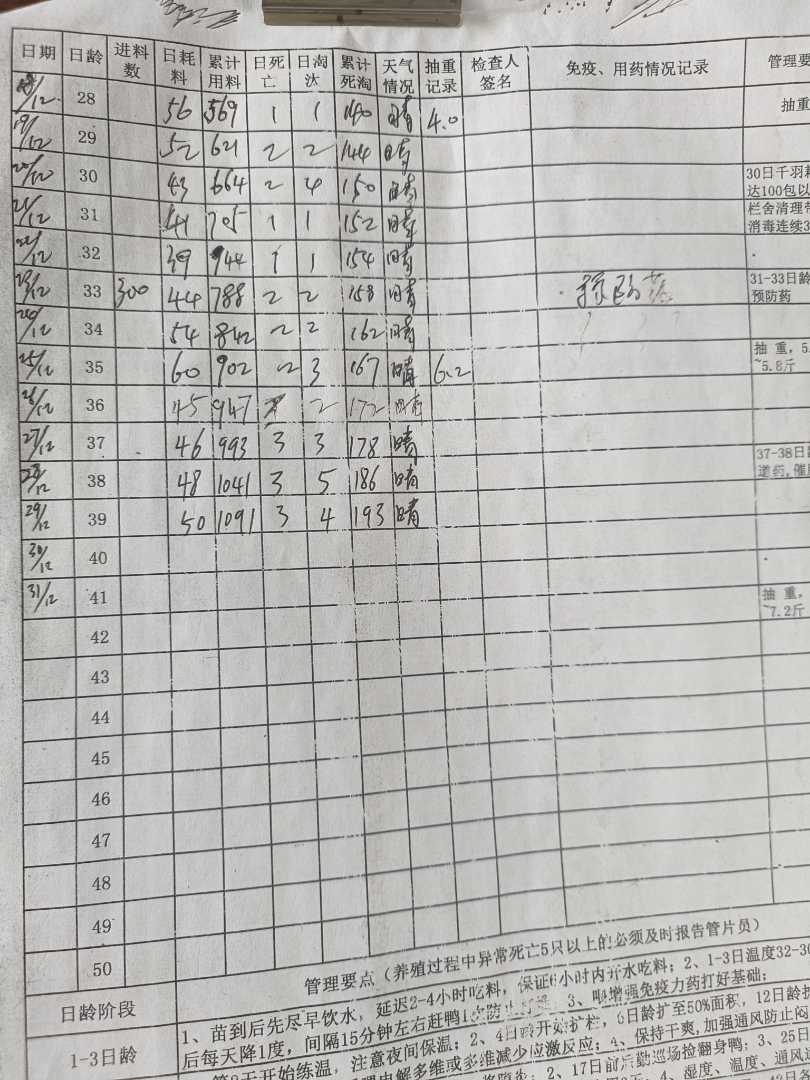 日期 日龄 进料数 日耗料 累计用料 日死亡 日淘汰 累计死淘 天气情况 抽重记录 检查人签名 免疫、用药情况记录 管理要
18/12 28 56 569 1 1 140 晴 4.0 抽重
19/12 29 52 621 2 2 144 晴
20/12 30 43 664 2 4 150 晴 30日千羽 达100包以
21/12 31 41 705 1 1 152 晴 栏舍清理 消毒连续3
22/12 32 39 944 1 1 154 晴
23/12 33 300 44 788 2 2 158 晴 预防药 31-33日龄 预防药
24/12 34 54 842 2 2 162 晴
25/12 35 60 902 2 3 167 晴 6.2 抽重，5. ~5.8斤
26/12 36 45 947 2 172 晴
27/12 37 46 993 3 3 178 晴
28/12 38 48 1041 3 5 186 晴 37-38日龄 道药，催
29/12 39 50 1091 3 4 193 晴
30/12 40
31/12 41 抽重， ~7.2斤
42
43
44
45
46
47
48
49
50
管理要点（养殖过程中异常死亡5只以上的必须及时报告管片员）
日龄阶段
1、苗到后先尽早饮水，延迟2-4小时吃料，保证6小时内开水吃料；2、1-3日温度32-30
1-3日龄
后每天降1度，间隔15分钟左右赶鸭1次防止 3、 增强免疫力药打好基础；
天开始练温，注意夜间保温；2、4日龄开始扩栏，6日龄扩至50%面积，12日龄扩
电解多维或多维减少应激反应；4、保持干爽，加强通风防止闷
2、17日前后勤巡场捡翻身鸭；3、25日
4、湿度、温度、通风